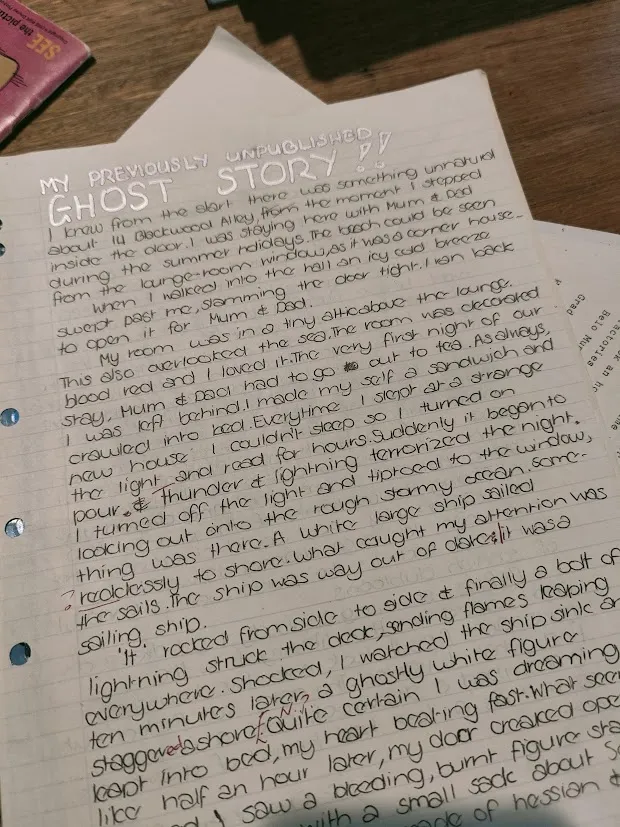 SEE
the pictur
MY PREVIOUSLY UNPUBLISHED
GHOST STORY !!
I knew from the start there was something unnatural
about 14 Blackwood Alley, from the moment I stepped
inside the door. I was staying here with Mum & Dad
during the summer holidays. The beach could be seen
from the lounge-room window, as it was a corner house.
When I walked into the hall an icy cold breeze
swept past me, slamming the door tight. I ran back
to open it for Mum & Dad.
My room was in a tiny attic above the lounge.
This also overlooked the sea. The room was decorated
blood red and I loved it. The very first night of our
stay, Mum & Dad had to go out to tea. As always,
I was left behind. I made my self a sandwich and
crawled into bed. Everytime I slept at a strange
new house I couldn't sleep so I turned on
the light and read for hours. Suddenly it began to
pour. & Thunder & lightning terrorized the night.
I turned off the light and tiptoed to the window,
looking out onto the rough stormy ocean. Some-
thing was there. A white large ship sailed
? realdessly to shore. What caught my attention was
the sails. The ship was way out of date, it was a
sailing ship.
'It' rocked from side to side & finally a bolt of
lightning struck the deck, sending flames leaping
everywhere. Shocked, I watched the ship sink an
ten minutes later a ghostly white figure
staggered ashore. [N.P. Quite certain I was dreaming
leapt into bed, my heart beating fast. What see
like half an hour later, my door creaked ope
I saw a bleeding, burnt figure sta
with a small sack about
made of hessian &
Grad
actories